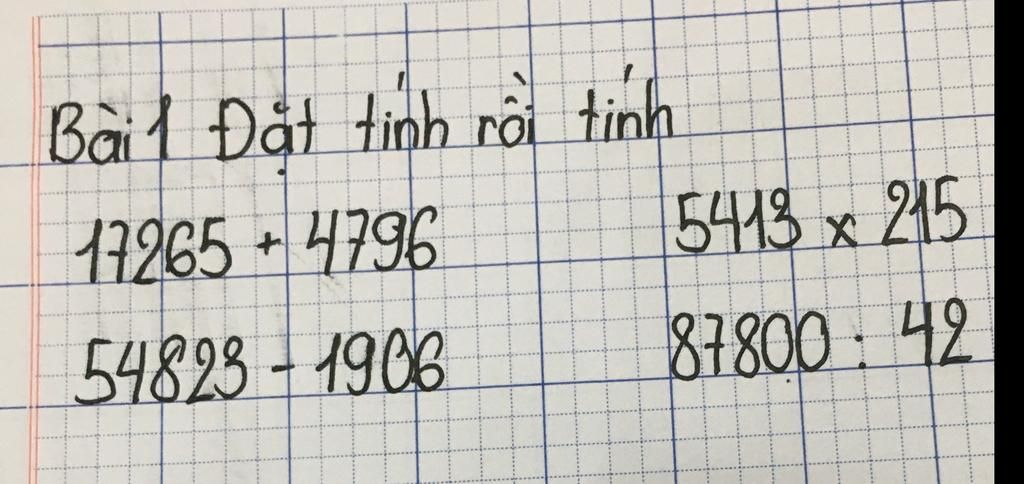 Bài 1 Đặt tính rồi tính
17265 + 4796 5413 x 215
54823 - 1906 87800 : 42